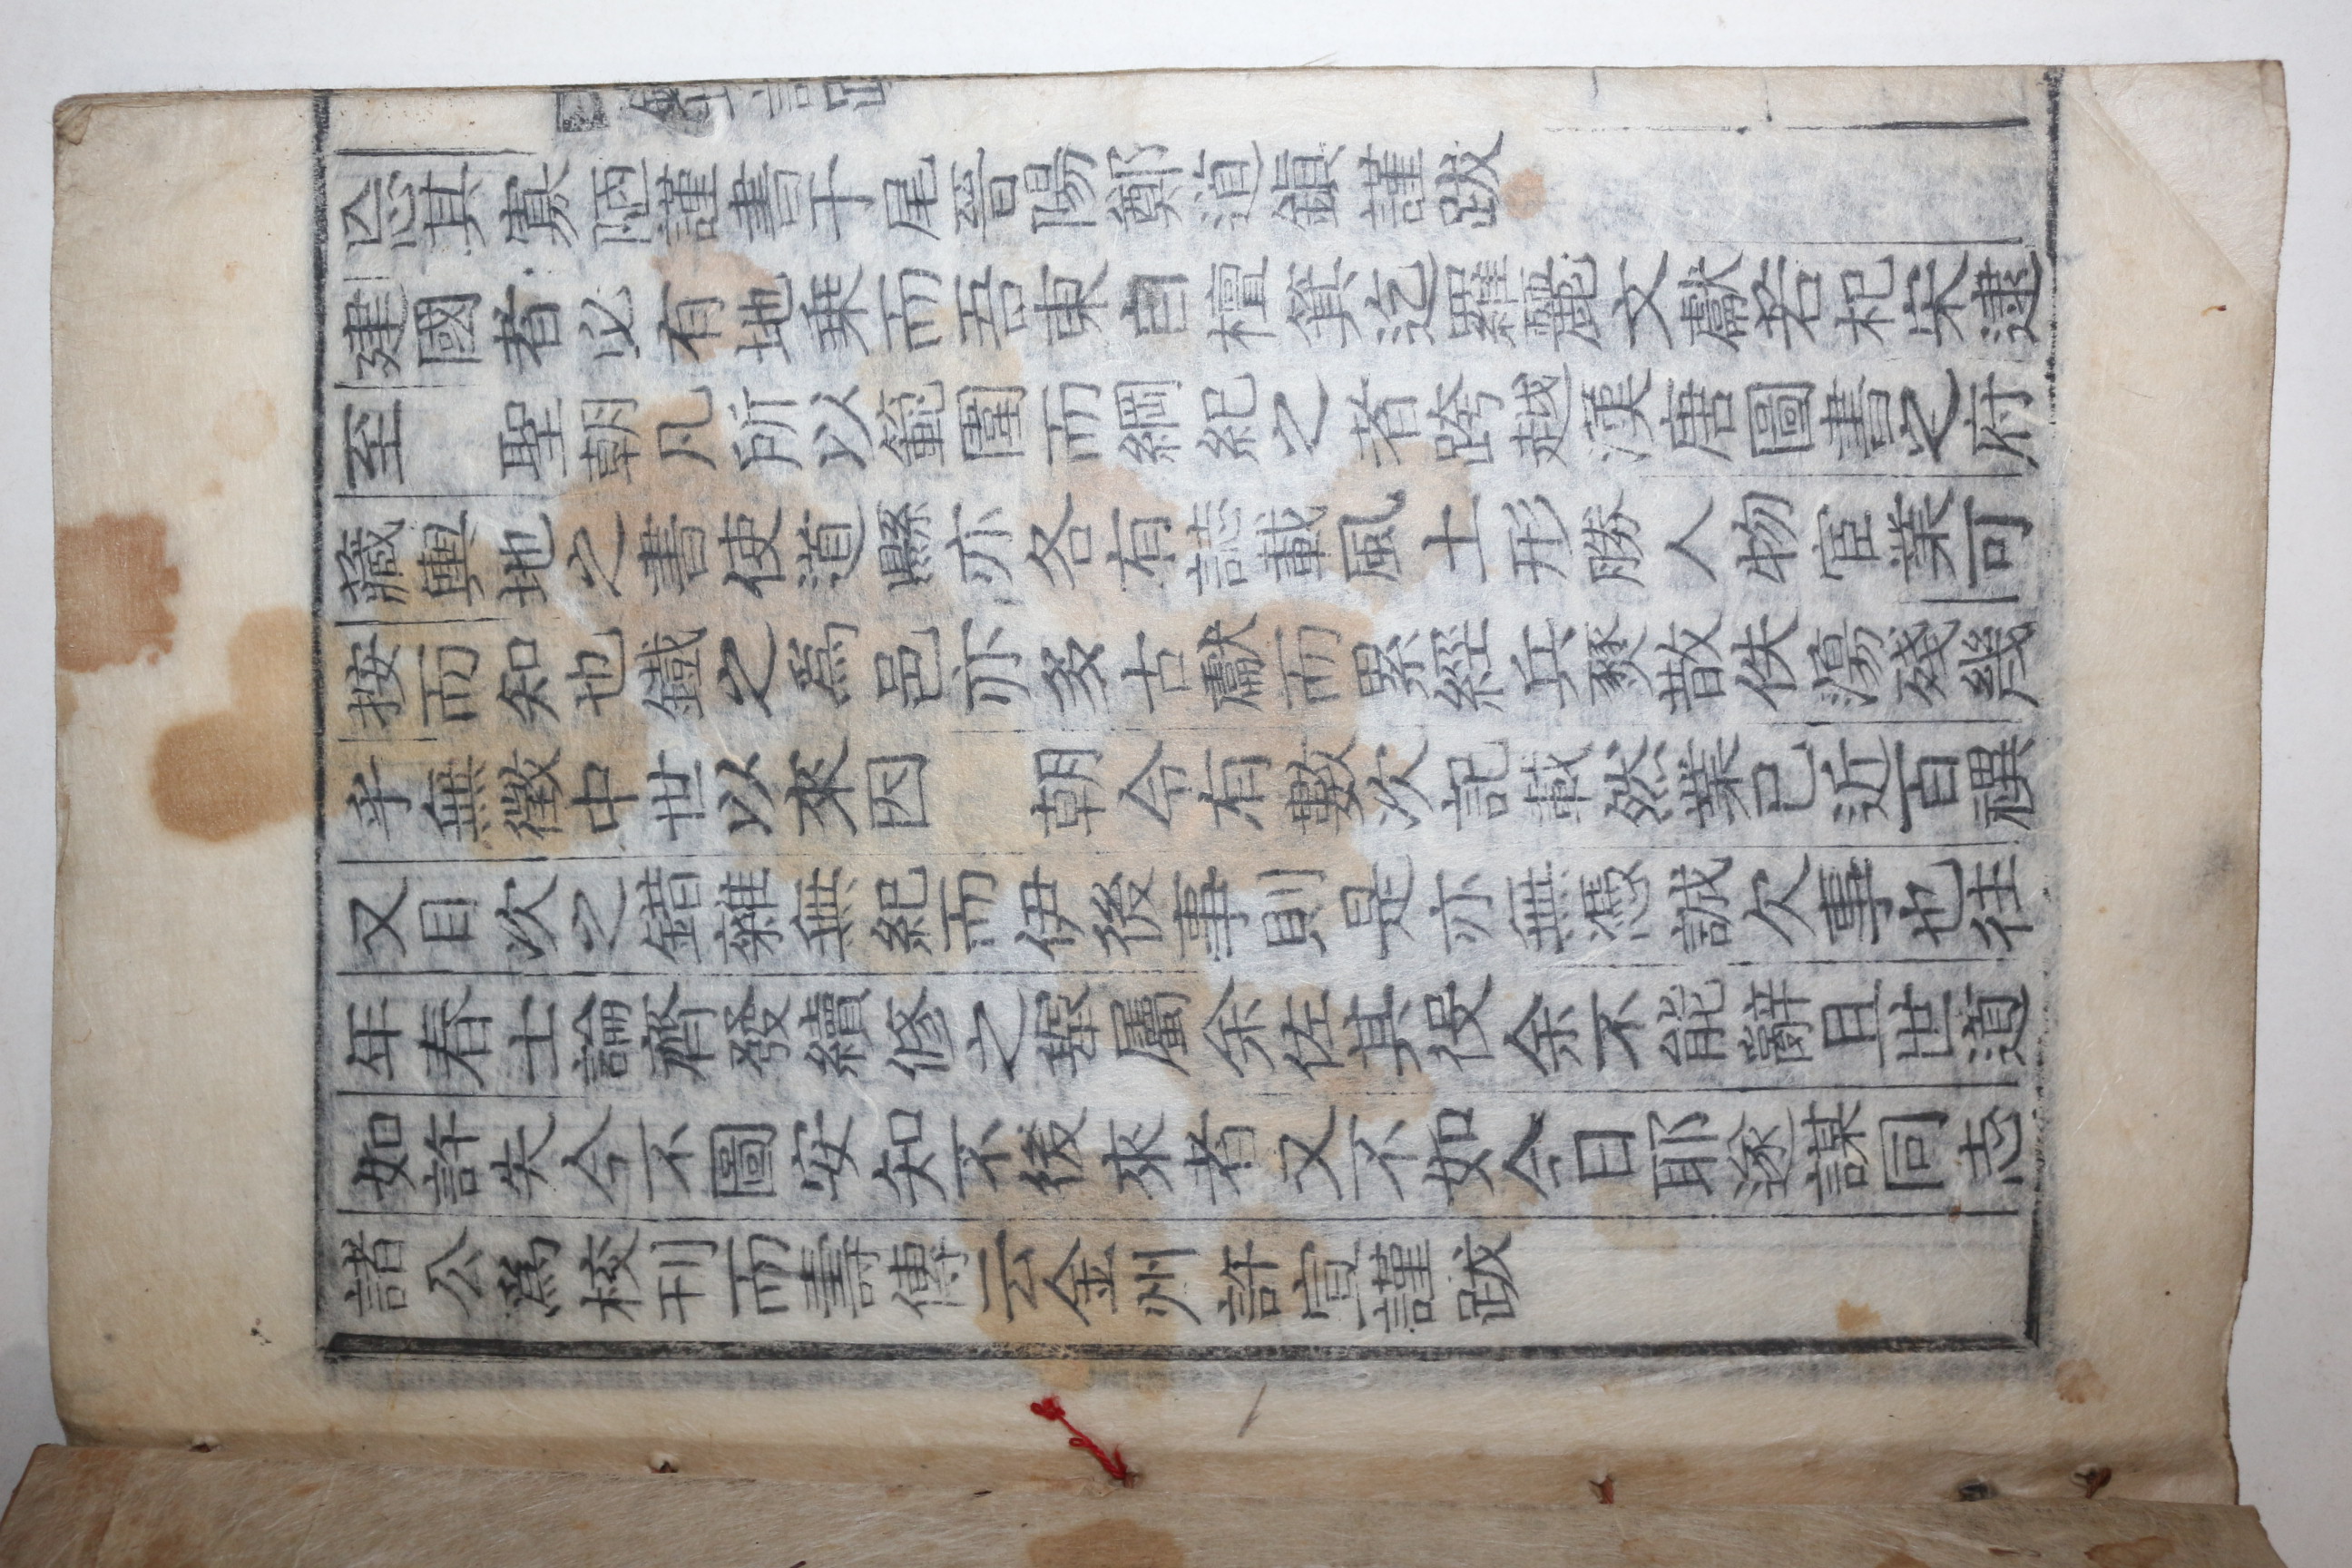 忘其寡陋謹書于尾晉陽鄭道鎭謹跋
建國者必有地乗而吾東自檀箕迄羅麗文獻若杞宋逮
至　聖朝凡所以範圍而綱紀之者跨越漢唐圖書之府
藏輿地之書使道縣亦各有誌載風土形勝人物宦業可
按而知也鐵之爲邑亦多古獻而累經兵燹散佚蕩殘幾
乎無徵中世以來因　朝令有數次記載然業已近百禩
又目次之錯雜無紀而伊後事則是亦無憑誠欠事也往
年春士論齊發續修之擧屬余佐其役余不能辭且世道
如許失今不圖安知不後來者又不如今日耶遂謀同志
諸公爲校刊而壽傳云金州許宣謹跋